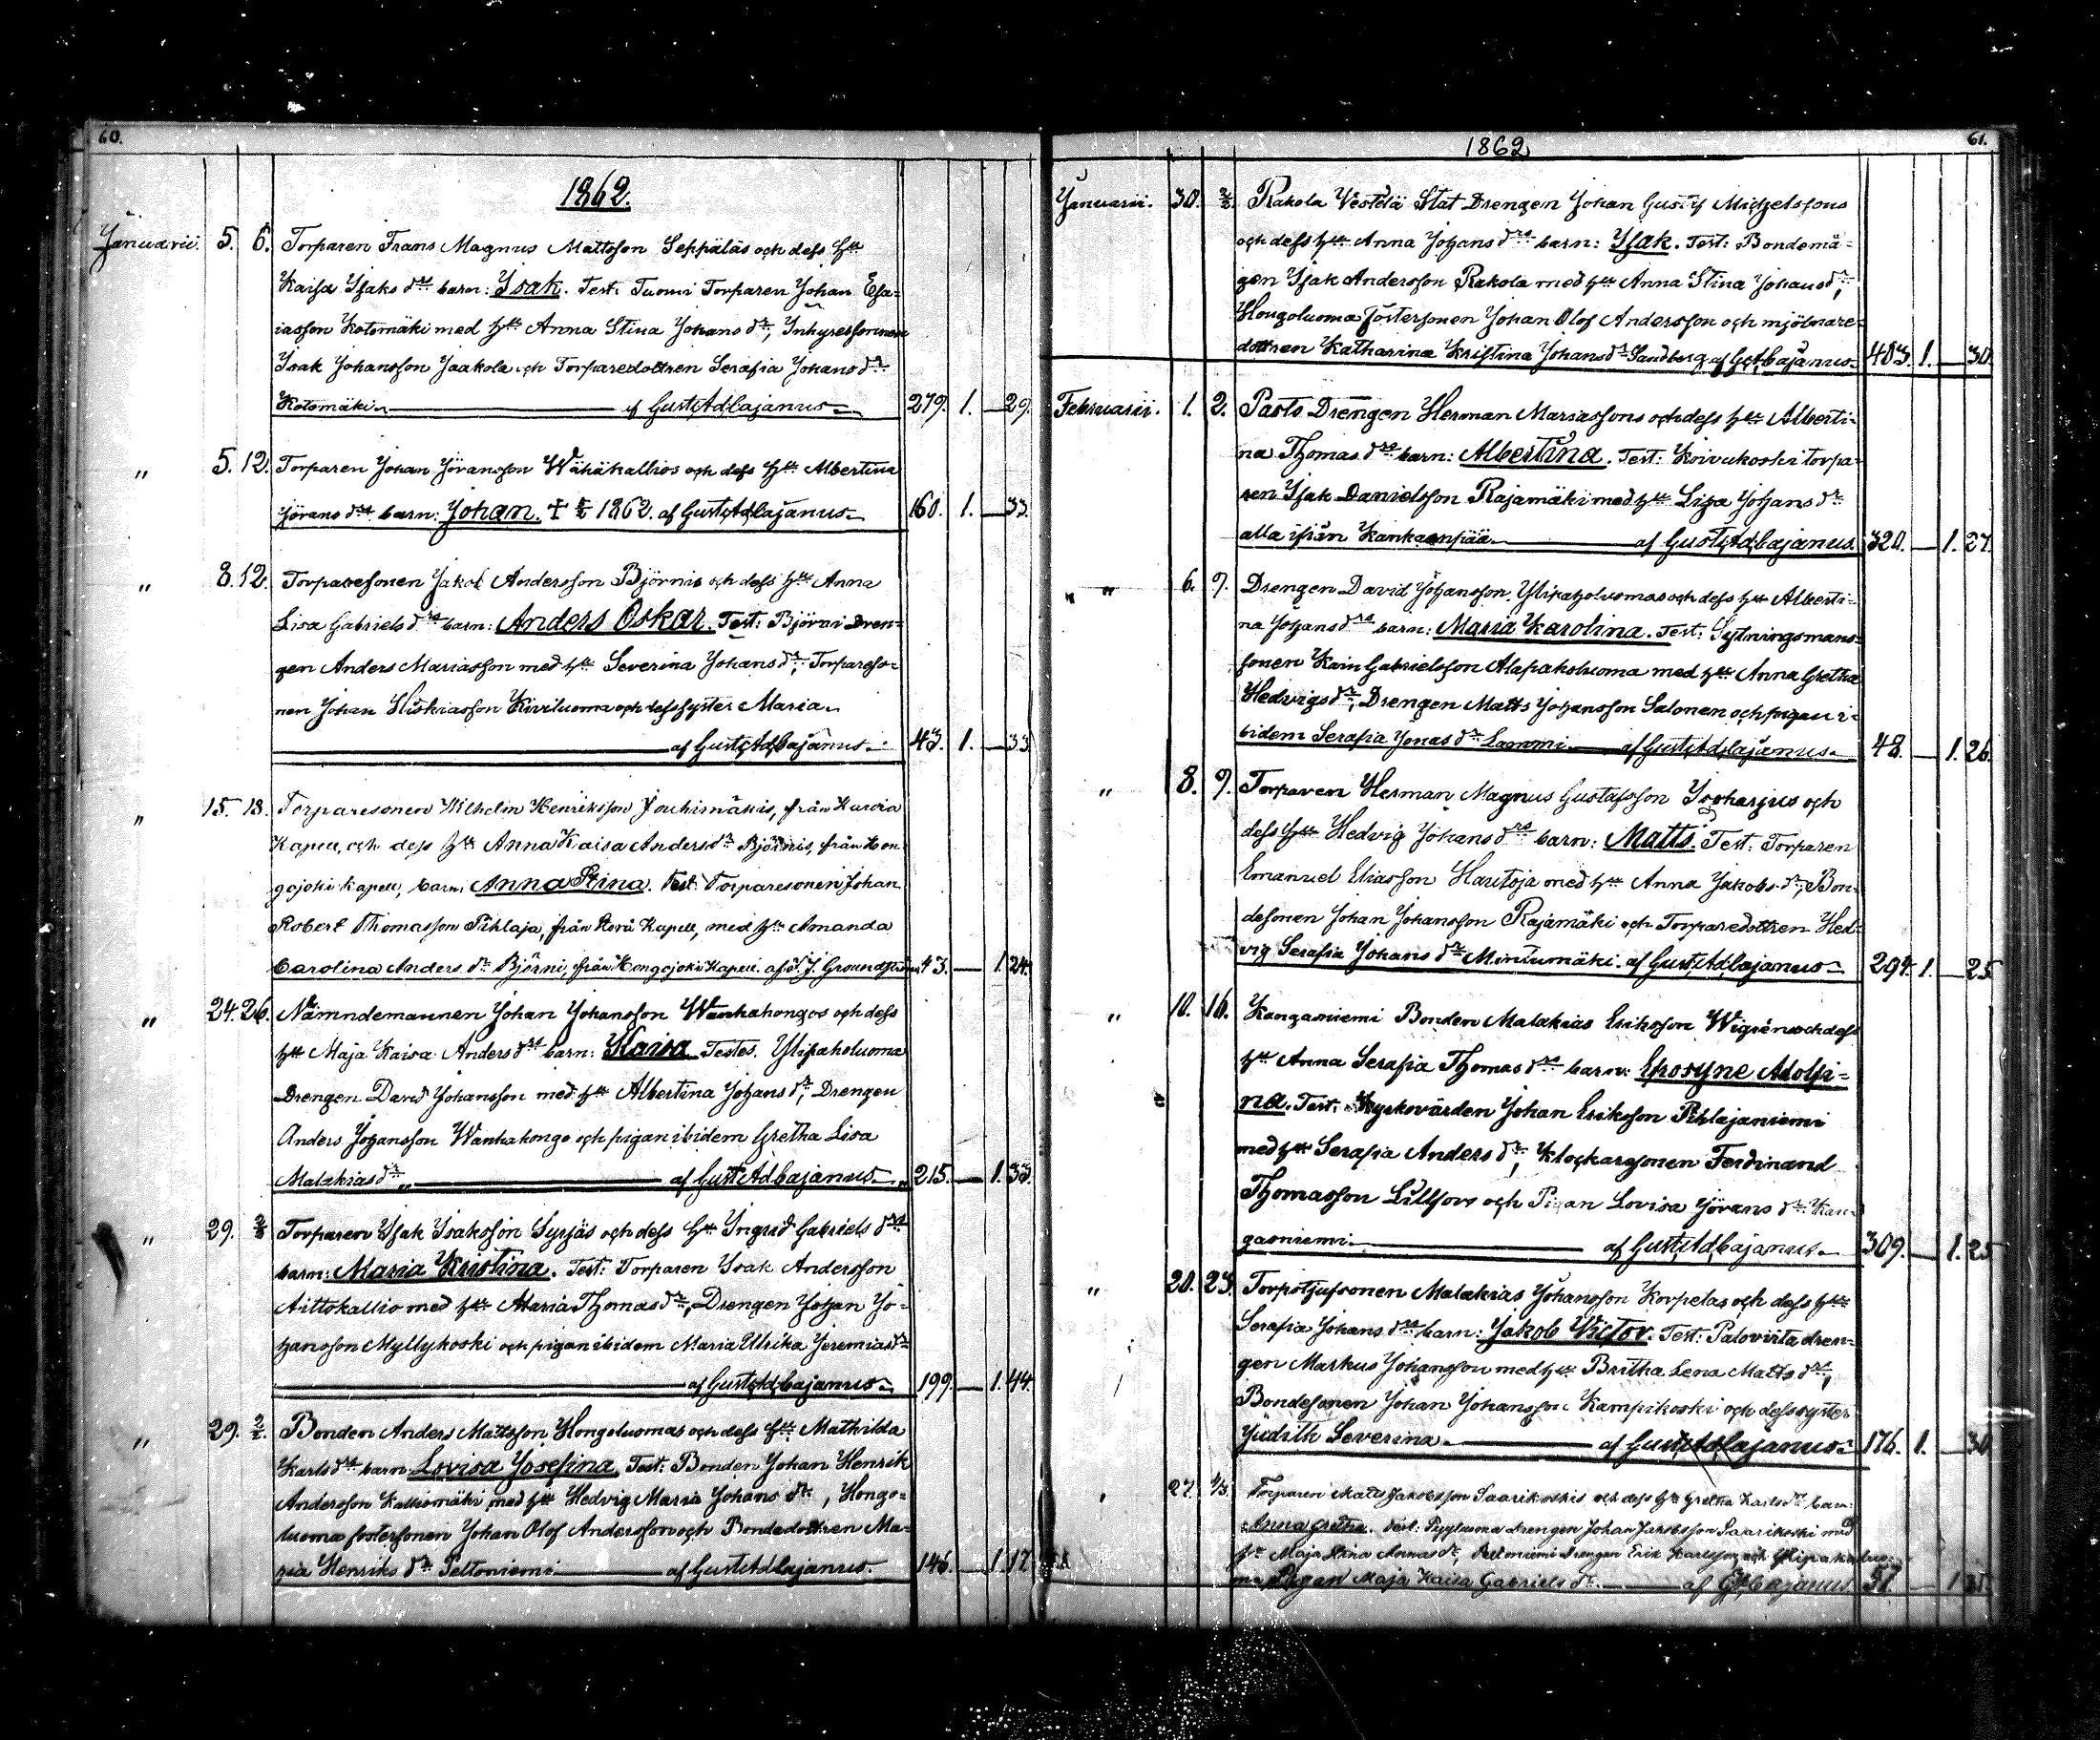 60.
1862.
Januarii. 5. 6. Torparen Frans Magnus Mattsson Seppäläs och dess hu
Kaisa Isaks drs barn: Isak. Test: Tuomi Torparen Johan Esa-
iasson Kotomäki med hu Anna Stina Johans dr, Inhysessonen
Isak Johansson Jaakola och Torparedottren Serafia Johans dr
Kotomäki. af Gust Ad Cajanus. 279. 1. — 29.
" 5. 12. Torparen Johan Jöransson Wähäkallios och dess hu Albertina
Jörans drs barn: Johan. + 1862. af Gust Ad Cajanus. 160. 1. — 33.
" 8. 12. Torparesonen Jakob Andersson Björnis och dess hu Anna
Lisa Gabriels drs barn: Anders Oskar. Test: Björni Dren-
gen Anders Mariasson med hu Severina Johans dr, Torpareso-
nen Johan Hiskiasson Kiviluoma och dess syster Maria.
af Gust Ad Cajanus. 43. 1. — 33.
" 15. 18. Torparesonen Wilhelm Henriksson Jouhimäkis, från
Kapell, och dess hu Anna Kaisa Anders dr Björnis, från Hon
gojoki Kapell, barn: Anna Stina. Test: Torparesonen Johan
Robert Thomasson Pihlaja, från Kapell, med hu Amanda
Carolina Anders dr Björni, från Hongojoki Kapell. af J. Groundström 43. — 1. 24.
" 24. 26. Nämndemannen Johan Johansson Wanhahongos och dess
hu Maja Kaisa Anders drs barn: Kaisa. Testes. Ylipaholuoma
Drengen David Johansson med hu Albertina Johans dr, Drengen
Anders Johansson Wanhahongo och pigan ibidem Gretha Lisa
Malakias dr. af Gust Ad Cajanus. 215. — 1. 33.
" 29. 2/2 Torparen Isak Isaksson Syrjäs och dess hu Ingrid Gabriels drs
barn: Maria Kristina. Test: Torparen Isak Andersson
Aittokallio med hu Maria Thomas dr, Drengen Johan Jo-
hansson Myllykoski och pigan ibidem Maria Ulrika Jeremias dr
af Gust Ad Cajanus. 199. — 1. 44.
" 29. 2/2. Bonden Anders Mattsson Hongoluomas och dess hu Mathilda
Karls drs barn: Lovisa Josefina. Test: Bonden Johan Henrik
Andersson Kalliomäki med hu Hedvig Maria Johans dr, Hongo-
luoma fostersonen Johan Olof Andersson och Bondedottren Ma-
ria Henriks dr Peltoniemi. af Gust Ad Cajanus. 146. — 1. 17.
61.
1862
Januarii. 30. 2/2. Rakola Westelä Stat Drengen Johan Gustaf Michelssons
och dess hu Anna Johans drs barn: Isak. Test: Bondemå-
gen Isak Andersson Rakola med hu Anna Stina Johans dr,
Hongoluoma fostersonen Johan Olof Andersson och mjölnare-
dottren Katharina Kristina Johans dr Sandberg. af G. A. Cajanus. 403. 1. — 30.
Februarii. 1. 2. Pasto Drengen Herman Mariassons och dess hu Alberti-
na Thomas drs barn: Albertina. Test: Koivukoski torpa-
ren Isak Danielsson Rajamäki med hu Lisa Johans dr
alla ifrån Kankaanpää. af Gust Ad Cajanus. 320. — 1. 27.
" 6. 9. Drengen David Johansson Ylipaholuomas och dess hu Alberti-
na Johans drs barn: Maria Karolina. Test: Sytningsmans-
sonen Kain Gabrielsson Alapaholuoma med hu Anna Gretha
Hedvigs dr, Drengen Matts Johansson Salonen och pigan i-
bidem Serafia Jonas dr Lammi. af Gust Ad Cajanus. 48. — 1. 26.
" 8. 9. Torparen Herman Magnus Gustafsson Isoharjus och
dess hu Hedvig Johans drs barn: Matts. Test: Torparen
Emanuel Eliasson Hautoja med hu Anna Jakobs dr, Bon-
desonen Johan Johansson Rajamäki och Torparedottren Hed-
vig Serafia Johans dr Mintumäki. af Gust Ad Cajanus. 294. 1. — 25
" 10. 16. Kangasniemi Bonden Malakias Eriksson Wigrens och dess
hu Anna Serafia Thomas drs barn: Eprosyne Adolfi-
na. Test. Kyrkovärden Johan Eriksson Pihlajaniemi
med hu Serafia Anders dr, Klockarsonen Ferdinand
Thomasson Lilljors och Pigan Lovisa Jörans dr Kan-
gasniemi. af Gust Ad Cajanus. 309. — 1. 25
" 20. 23. Torpotjufsonen Malakias Johansson Korpelas och dess hu
Serafia Johans drs barn: Jakob Victor. Test: Palovirta dren-
gen Markus Johansson med hu Britha Lena Matts dr,
Bondesonen Johan Johansson Kampikoski och dess syster
Judith Severina. af Gust Ad Cajanus. 176. 1. — 30
27. 4/3. Torparen Matts Jakobsson Saarikoskis och dess hu Gretha Karls drs barn:
Anna Gretha. Test: Drengen Johan Jakobsson Saarikoski med
hu Maja Stina Annas dr, Peltoniemi Drengen Erik Karlsson och Ylipaholuo-
ma Pigan Maja Kaisa Gabriels dr. af G. A. Cajanus. 57. — 1. 35.